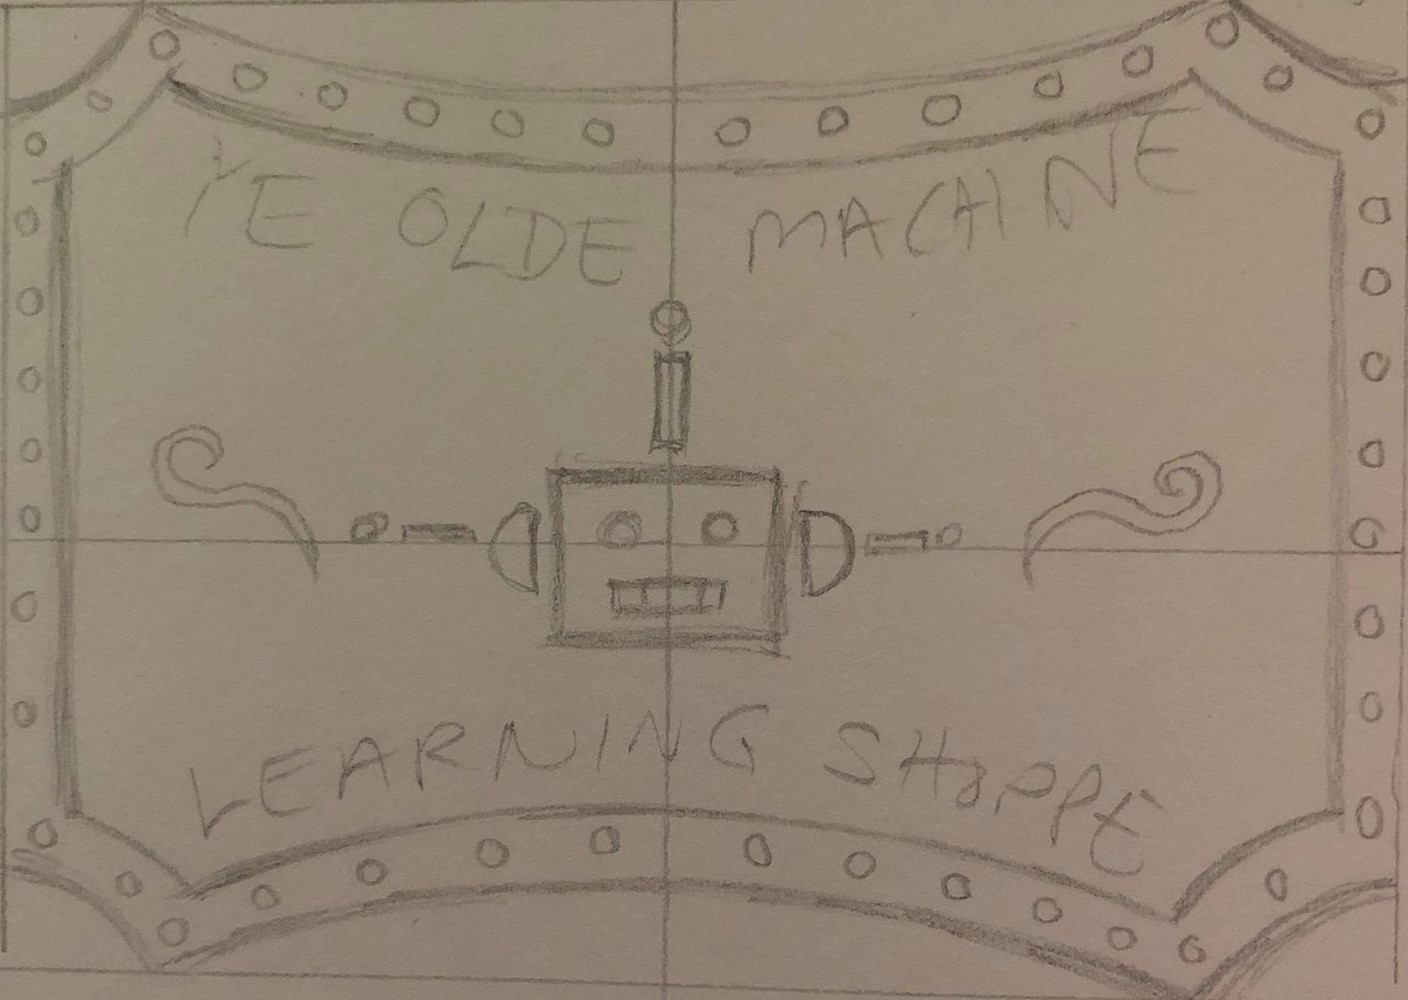 YE OLDE MACHINE
LEARNING SHOPPE